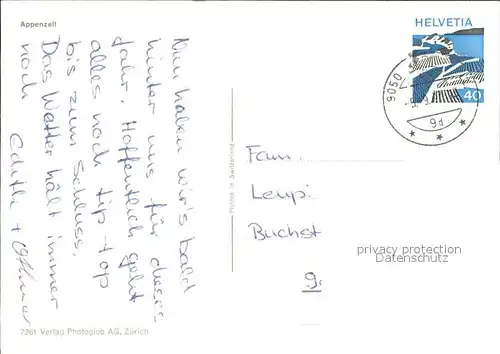 Appenzell
Nun haben wir's bald
hinter uns für dieses
Jahr. Hoffentlich geht
alles noch tip-top
bis zum Schluss.
Das Wetter hält immer
noch
Edith + Othmar
7261 Verlag Photoglob AG, Zürich
Printed in Switzerland
HELVETIA
40
9050
Fam.
Leupi
Buchst
9.
privacy protection
Datenschutz